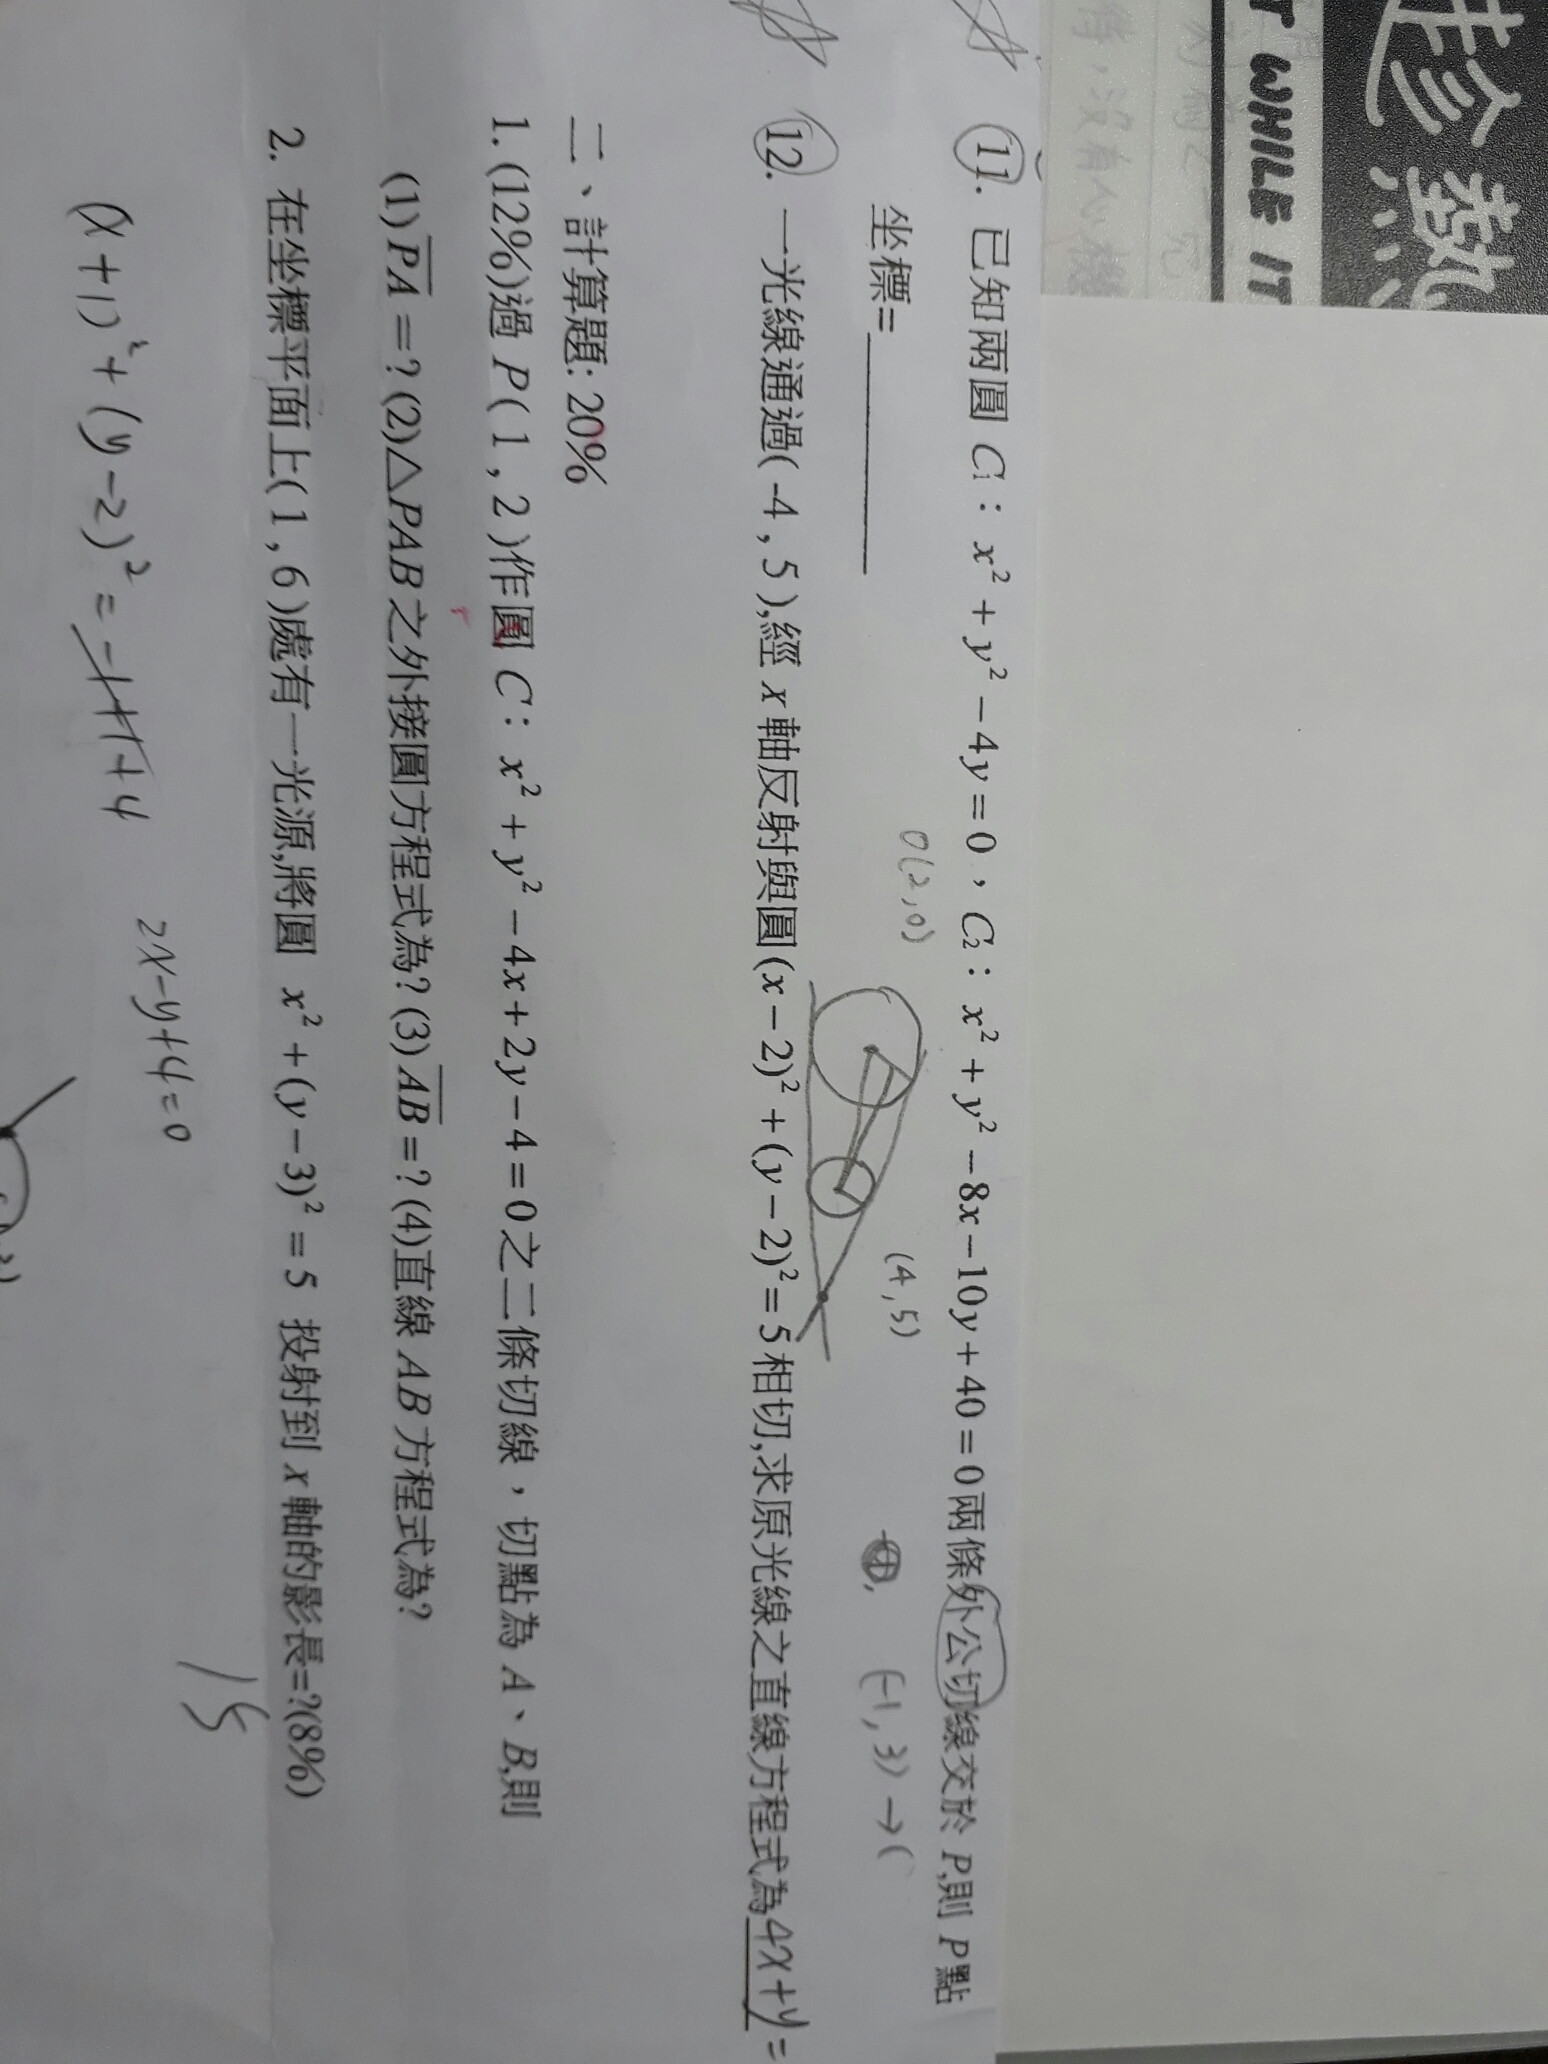 趁熱
T WHILE IT
11. 已知兩圓 C₁: x² + y² − 4y = 0, C₂: x² + y² − 8x − 10y + 40 = 0 兩條外公切線交於 P,則 P點
坐標=
0(2,0)
(4,5)
(-1,3)→(
12. 一光線通過( -4 , 5 ),經 x 軸反射與圓 (x − 2)² + (y − 2)² = 5 相切,求原光線之直線方程式為 4x+y=
二、計算題: 20%
1. (12%)過 P( 1 , 2 )作圓 C: x² + y² − 4x + 2y − 4 = 0 之二條切線,切點為 A、B,則
(1) P̅A̅ =? (2)△PAB 之外接圓方程式為? (3) A̅B̅ =? (4)直線 AB 方程式為?
2. 在坐標平面上( 1 , 6 )處有一光源,將圓 x² + (y − 3)² = 5 投射到 x 軸的影長=?(8%)
15
2x-y+4=0
(x+1)²+(y-2)²=